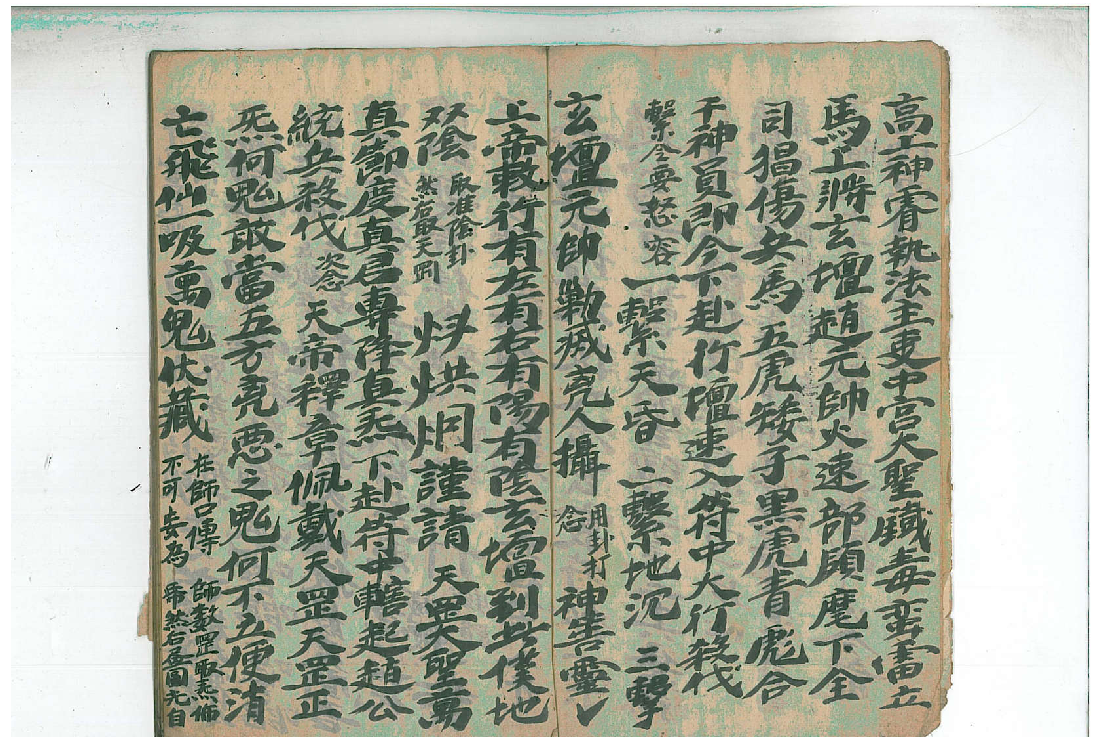 高上神霄執法主吏中宮大聖鐵毒蛮雷立
馬上將玄壇趙元帥火速部領麾下全
司猖傷兵馬五虎矮子黑虎青彪合
干神員即今下赴行壇速入符中大行殺伐
擊令要怒容 一擊天昏 二擊地沉 三擊
玄壇元帥勅滅亮人攝 用卦打念 神善靈
上帝敕行有左有右有陽有陰玄壇到此僕地
双陰 取准陰卦 然右取天罡 炑烘炯謹請 天罡大聖萬
真節度真君專降真炁下赴符中轄起趙公
統兵殺伐 次念 天帝釋章佩戴天罡天罡正
炁何鬼敢當五方亮惡之鬼何不立便消
亡飛仙一吸萬鬼伏藏 在師口傳 不可妄為 師數罡取炁佈